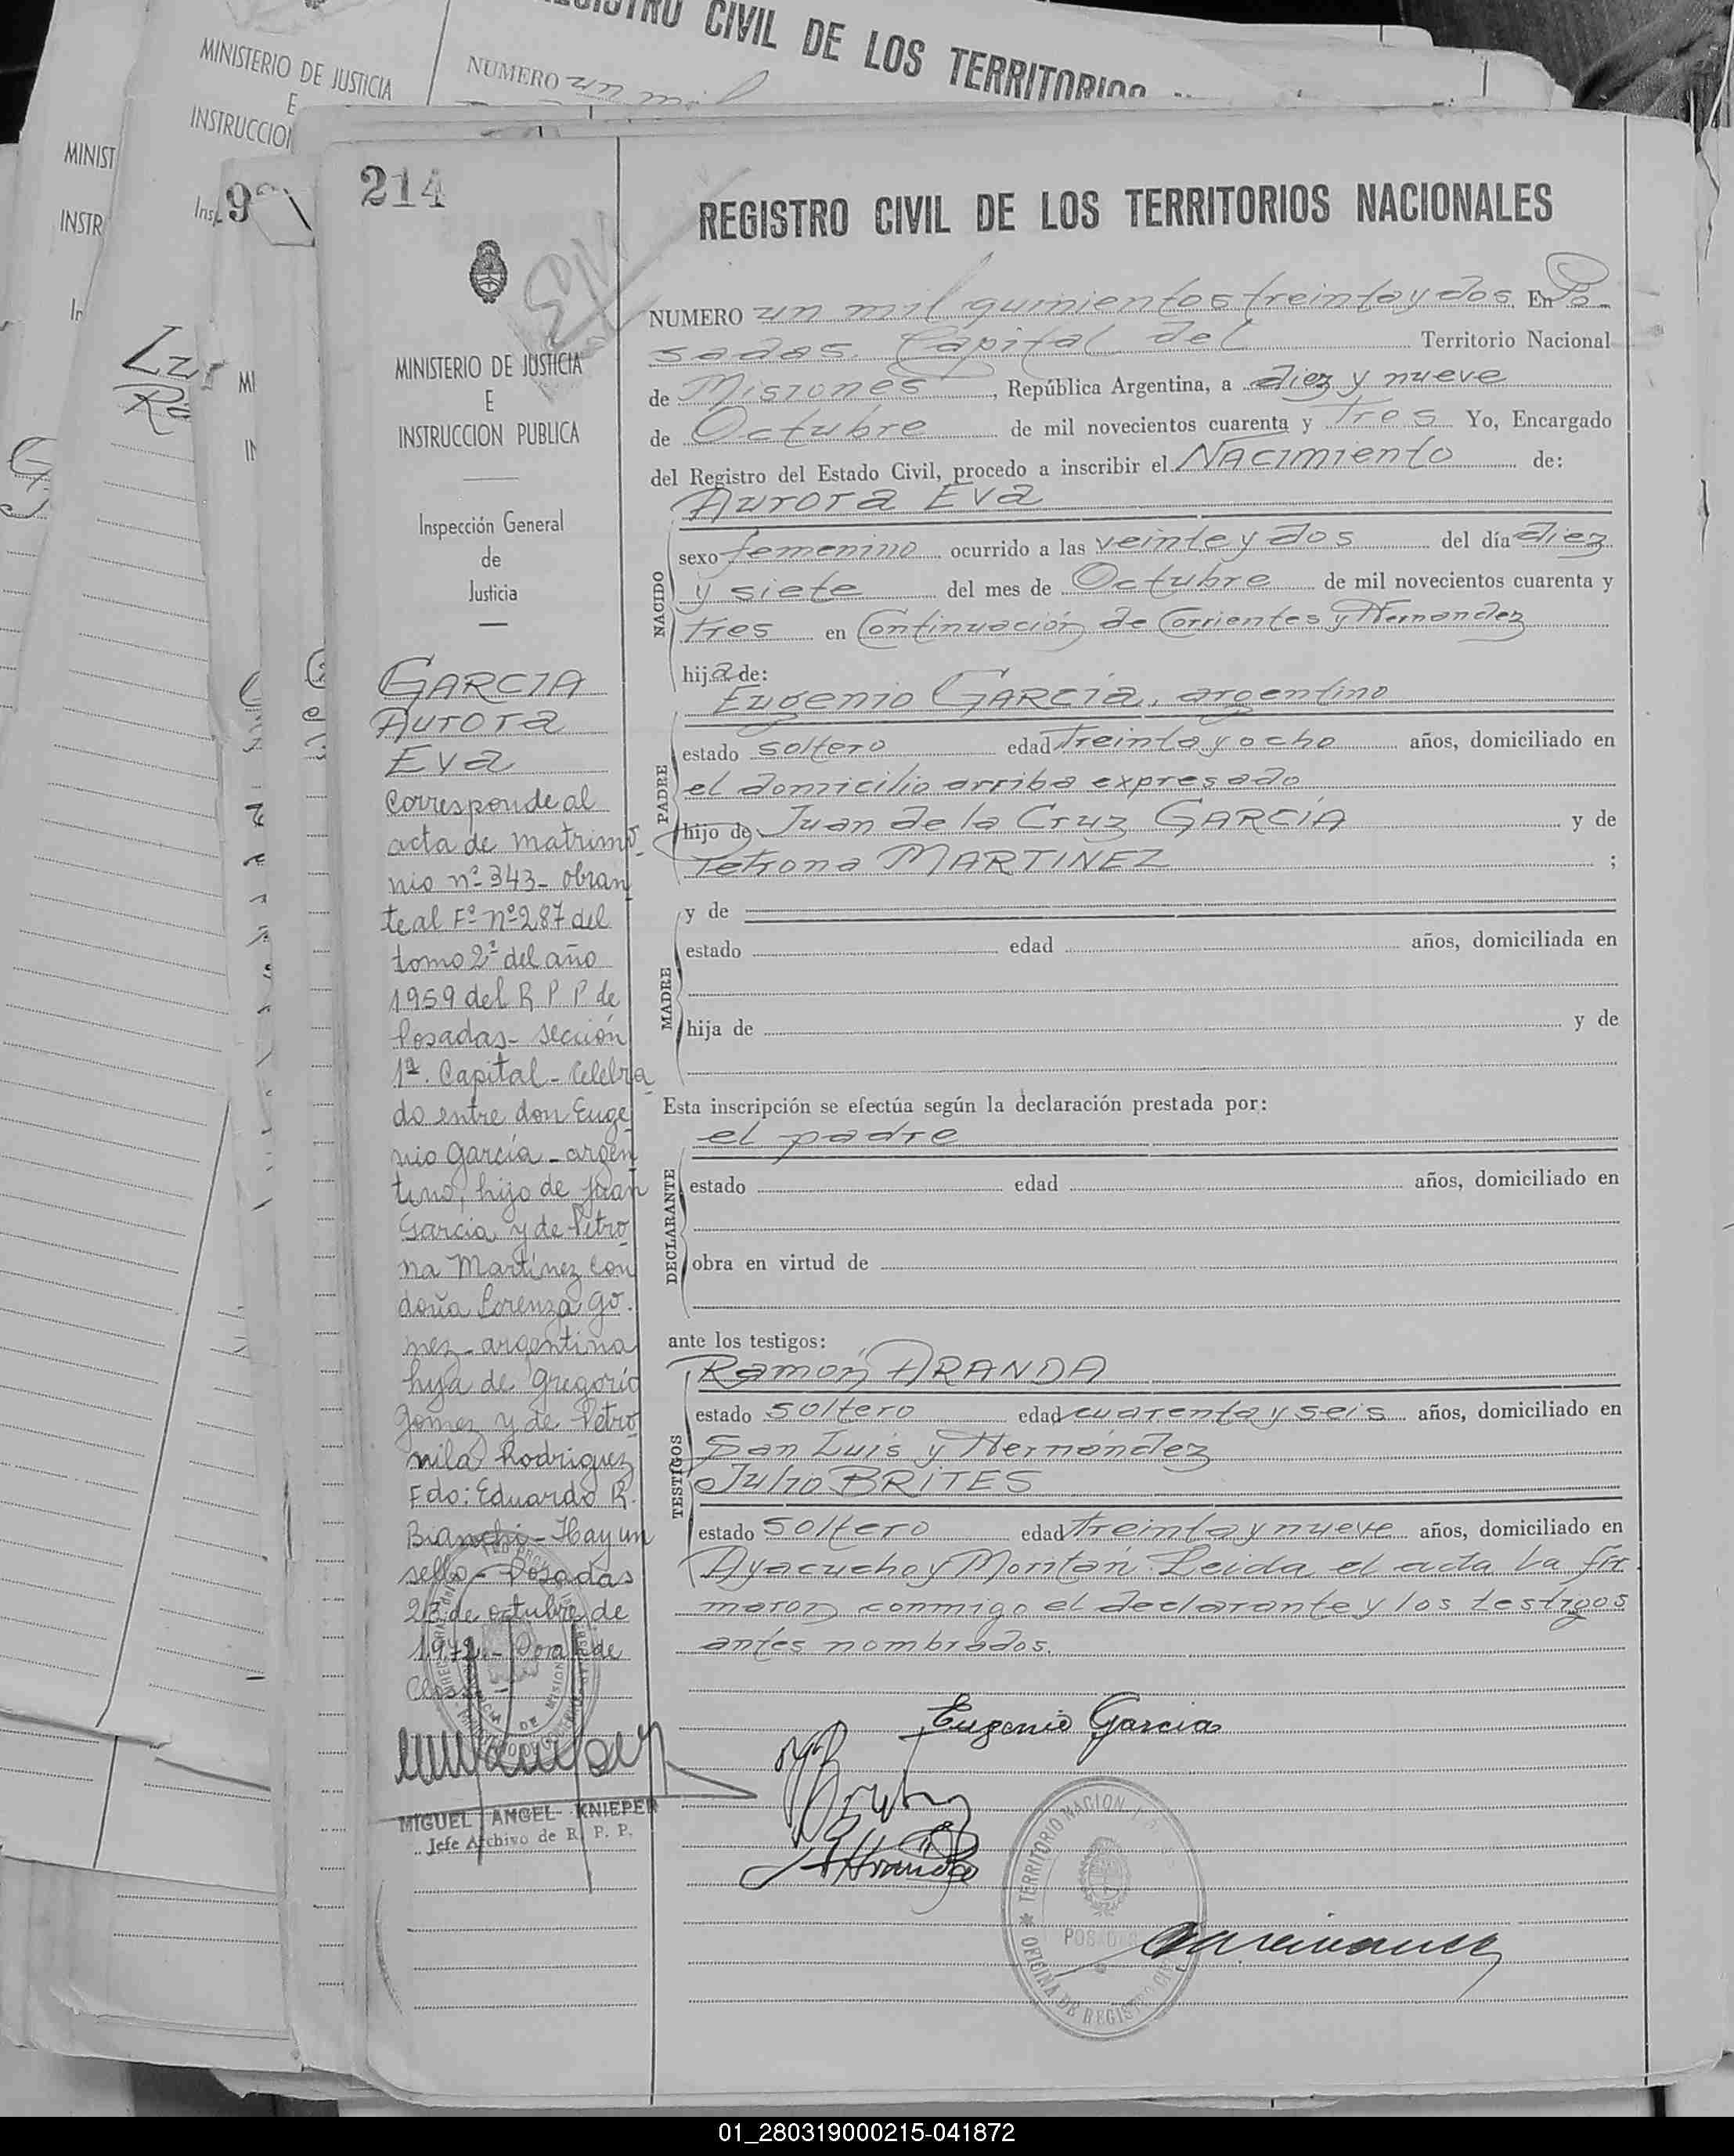 REGISTRO CIVIL DE LOS TERRITORIOS
MINISTERIO DE JUSTICIA
E
INSTRUCCION
NUMERO un mil
MINIST
INSTR
214
REGISTRO CIVIL DE LOS TERRITORIOS NACIONALES
NUMERO un mil quinientos treinta y dos En Po-
sadas. Capital del Territorio Nacional
de Misiones, República Argentina, a diez y nueve
de Octubre de mil novecientos cuarenta y Tres Yo, Encargado
del Registro del Estado Civil, procedo a inscribir el Nacimiento de:
Aurora Eva
NACIDO
sexo femenino ocurrido a las veinte y dos del día diez
y siete del mes de Octubre de mil novecientos cuarenta y
tres en Continuación de Corrientes y Hernandez
hija de:
PADRE
Eugenio GARCIA, argentino
estado soltero edad treinta y ocho años, domiciliado en
el domicilio arriba expresado
hijo de Juan de la Cruz GARCIA y de
Petrona MARTINEZ ;
MADRE
y de
estado edad años, domiciliada en
hija de y de
Esta inscripción se efectúa según la declaración prestada por:
el padre
DECLARANTE
estado edad años, domiciliado en
obra en virtud de
ante los testigos:
TESTIGOS
Ramón ARANDA
estado soltero edad cuarenta y seis años, domiciliado en
San Luis y Hernández
Julio BRITES
estado soltero edad treinta y nueve años, domiciliado en
Ayacucho y Moritán. Leida el acta la fir
maron conmigo el declarante y los testigos
antes nombrados.
Eugenio Garcia
TERRITORIO NACION
POSADAS
OFICINA DE REGISTRO
MINISTERIO DE JUSTICIA
E
INSTRUCCION PUBLICA
Inspección General
de
Justicia
GARCIA
Aurora
Eva
Corresponde al
acta de matrimo
nio nº 343- obran
te al Fº nº 287 del
tomo 2º del año
1959 del R P P de
Posadas- sección
1ª. Capital- Celebra
do entre don Euge
nio García - argen
tino, hijo de Juan
Garcia y de Petro
na Martínez con
doña Lorenza Go
mez- argentina
hija de Gregorio
Gomez y de Petro
nila Rodriguez
Fdo: Eduardo R.
Bianchi - Hay un
sello - Posadas
23 de octubre de
MIGUEL ANGEL KNIEPER
Jefe Archivo de R. P. P.
01_280319000215-041872